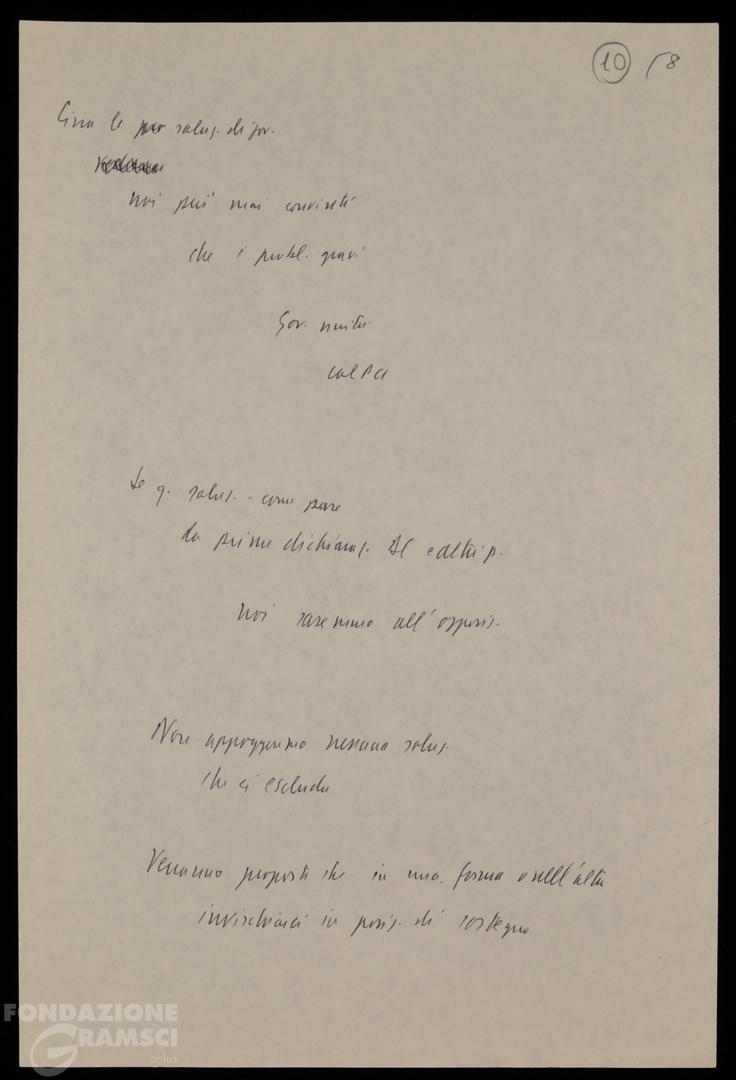 10 / 8
Circa le soluz. di gov.
noi più mai convinti
che i probl. gravi
Gov. unità
col PCI
Se q. soluz. - come pare
da prime dichiaraz. DC e altri p.
noi saremmo all'opposiz.
Non appoggeremo nessuna soluz.
che ci escluda
Verranno proposte che in una forma o nell'altra
invischiarci in posiz. di sostegno
FONDAZIONE
GRAMSCI
onlus